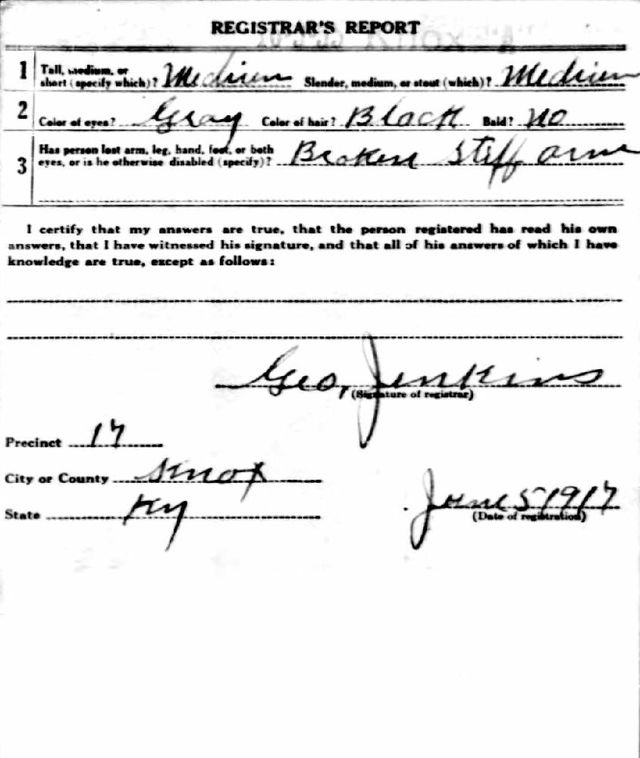 REGISTRAR'S REPORT
1 Tall, medium, or short (specify which)? Medium Slender, medium, or stout (which)? Medium
2 Color of eyes? Gray Color of hair? Black Bald? no
3 Has person lost arm, leg, hand, foot, or both eyes, or is he otherwise disabled (specify)? Broken stiff arm
I certify that my answers are true, that the person registered has read his own
answers, that I have witnessed his signature, and that all of his answers of which I have
knowledge are true, except as follows:
Geo, Jenkins
(Signature of registrar)
Precinct 17
City or County Knox
State Ky
June 5 1917
(Date of registration)